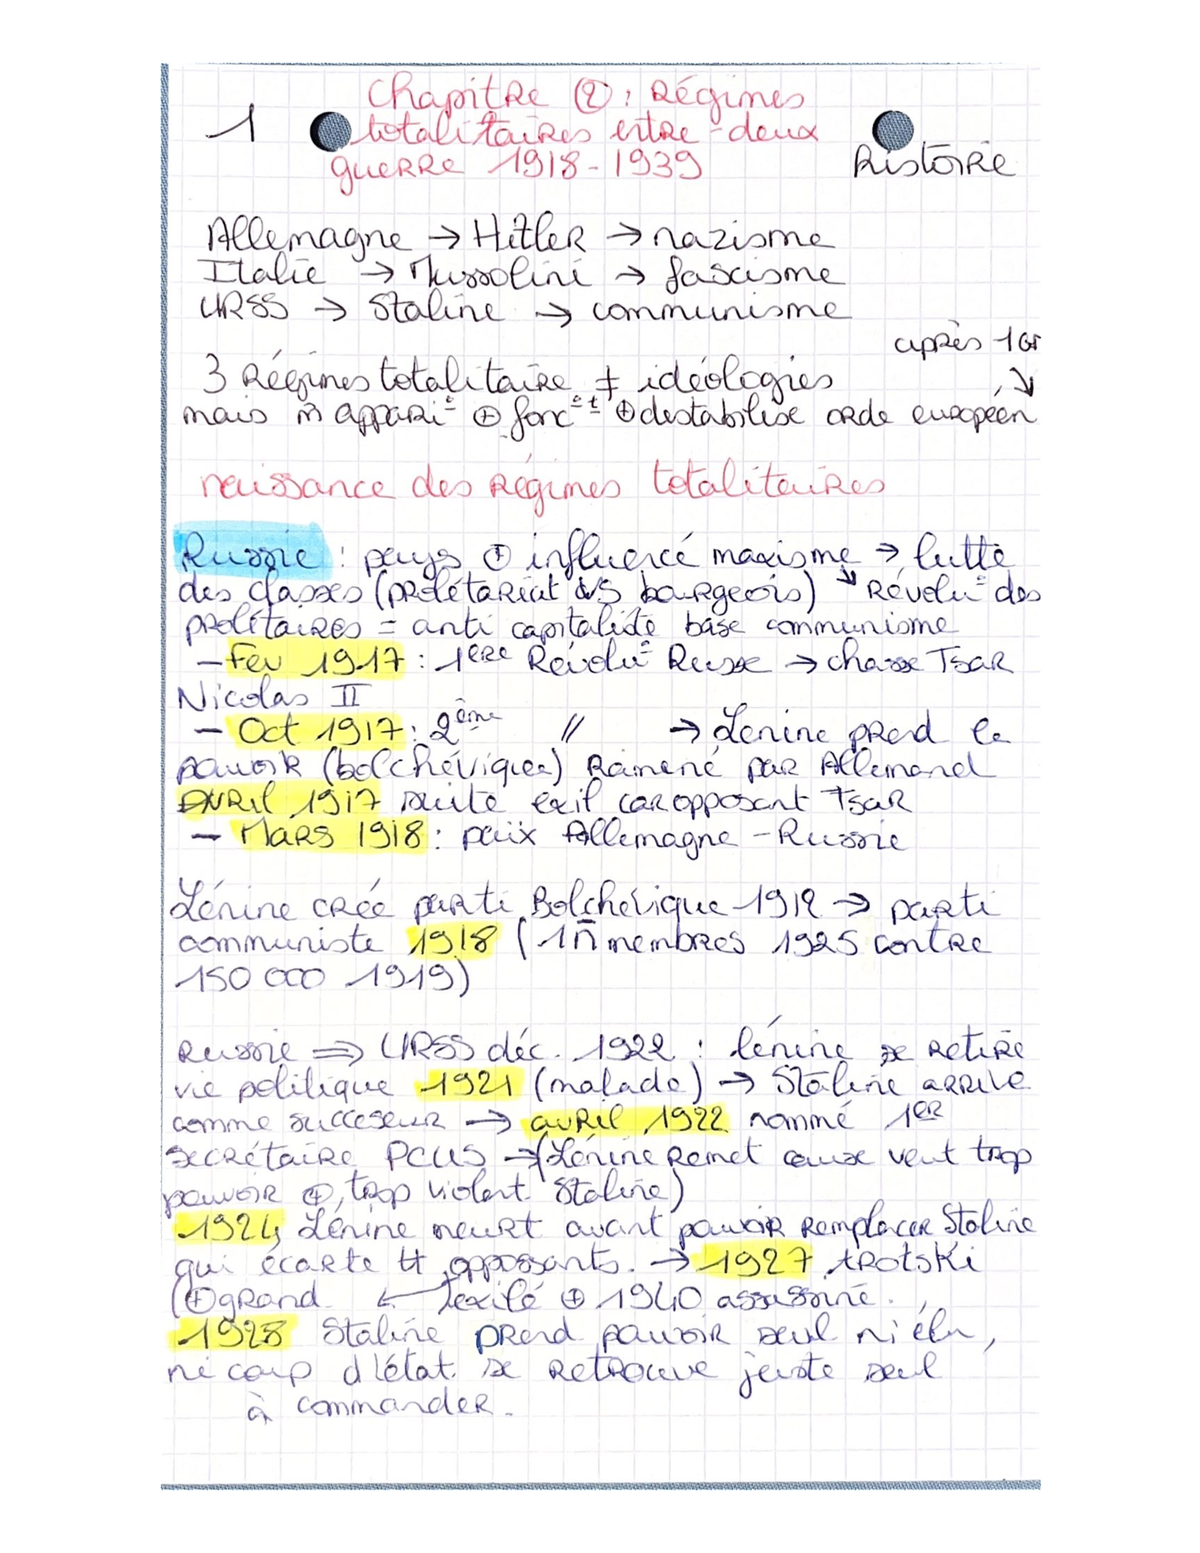 Chapitre (2) : Régimes
1 totalitaires entre-deux
guerre 1918-1939
Histoire
Allemagne → Hitler → nazisme
Italie → Mussolini → fascisme
URSS → Staline → communisme
après 1GM
3 Régimes totalitaire ≠ idéologies ↓
mais m̄ appari° ⊕ fonc° t ⊕ destabilise orde européen
naissance des régimes totalitaires
Russie : pays ⊕ influencé maxisme → lutte
des classes (prolétariat VS bourgeois) ↘ Révolu° des
prolitaires = anti capitaliste base communisme
- Fev 1917 : 1ère Révolu° Russe → chasse Tsar
Nicolas II
- Oct 1917 : 2ème // → Lenine prend le
pouvoir (bolchévique) Ramené par Allemand
AVRil 1917 suite exil car opposant Tsar
- Mars 1918 : paix Allemagne - Russie
Lénine créé parti Bolchévique 1912 → parti
communiste 1918 (1M membres 1925 contre
150 000 1919)
Russie ⇒ URSS déc. 1922 : lénine se retire
vie politique 1921 (malade) → Staline arrive
comme succeseur → avril 1922 nommé 1er
secrétaire PCUS → (Lénine Remet cause veut trop
pouvoir ⊕, trop violent Staline)
1924 Lénine meurt avant pouvoir remplacer Staline
qui écarte tt opposants. → 1927 trotski
(⊕grand ← exilé ⊕ 1940 assassiné.
1928 Staline prend pouvoir seul ni élu,
ni coup d'létat. se retrouve juste seul
à commander.